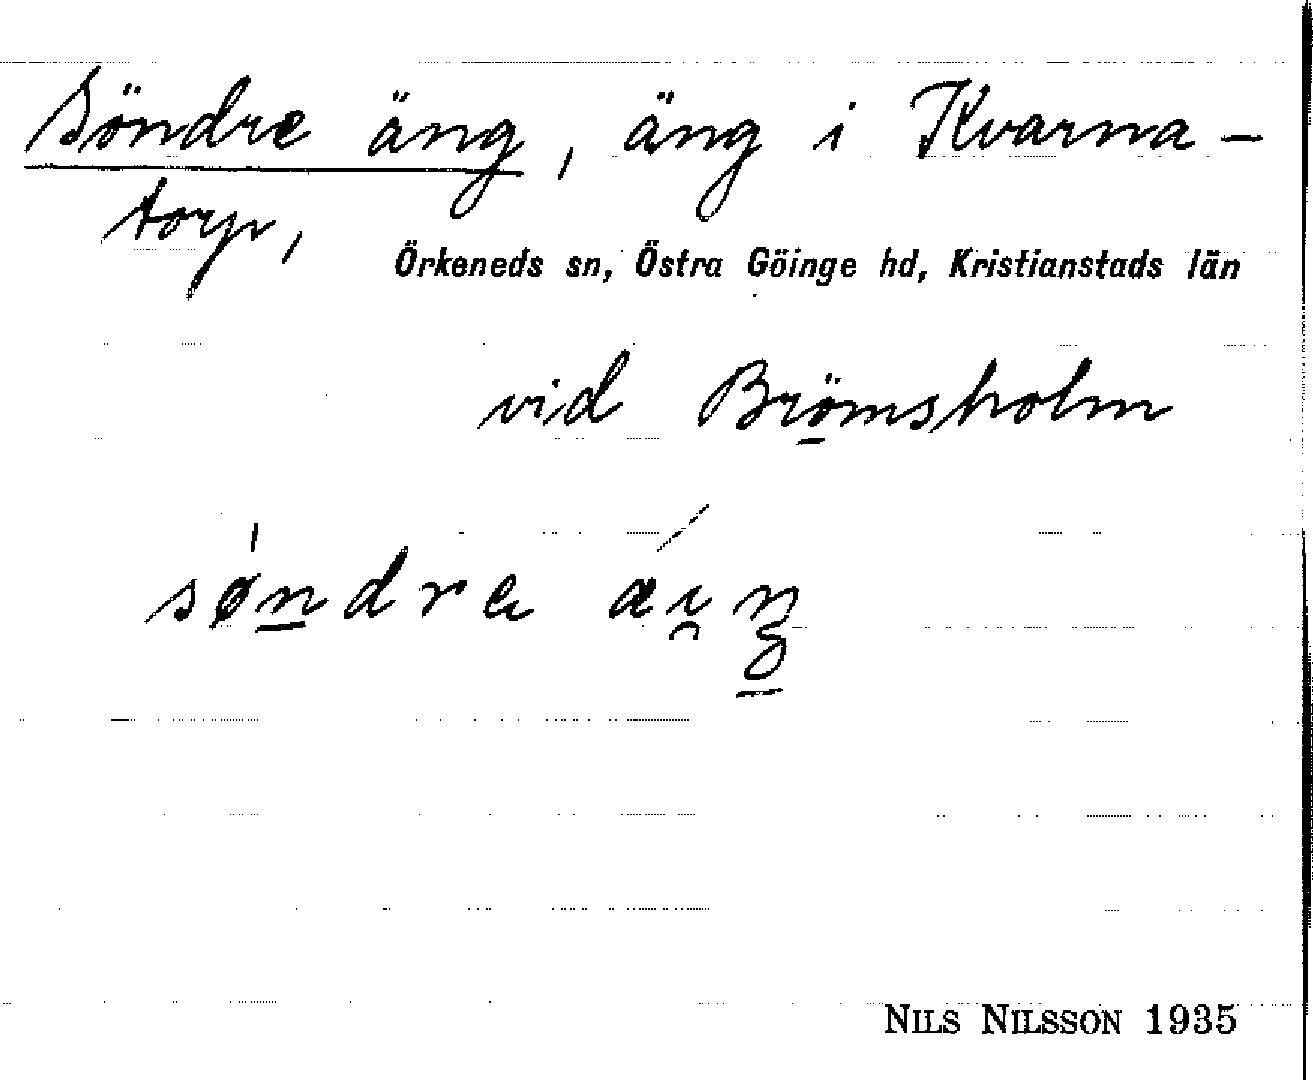 Söndre äng, äng i Kvarna-
torp,
Örkeneds sn, Östra Göinge hd, Kristianstads län
vid Brömsholm
søndre æi̯ŋ
NILS NILSSON 1935